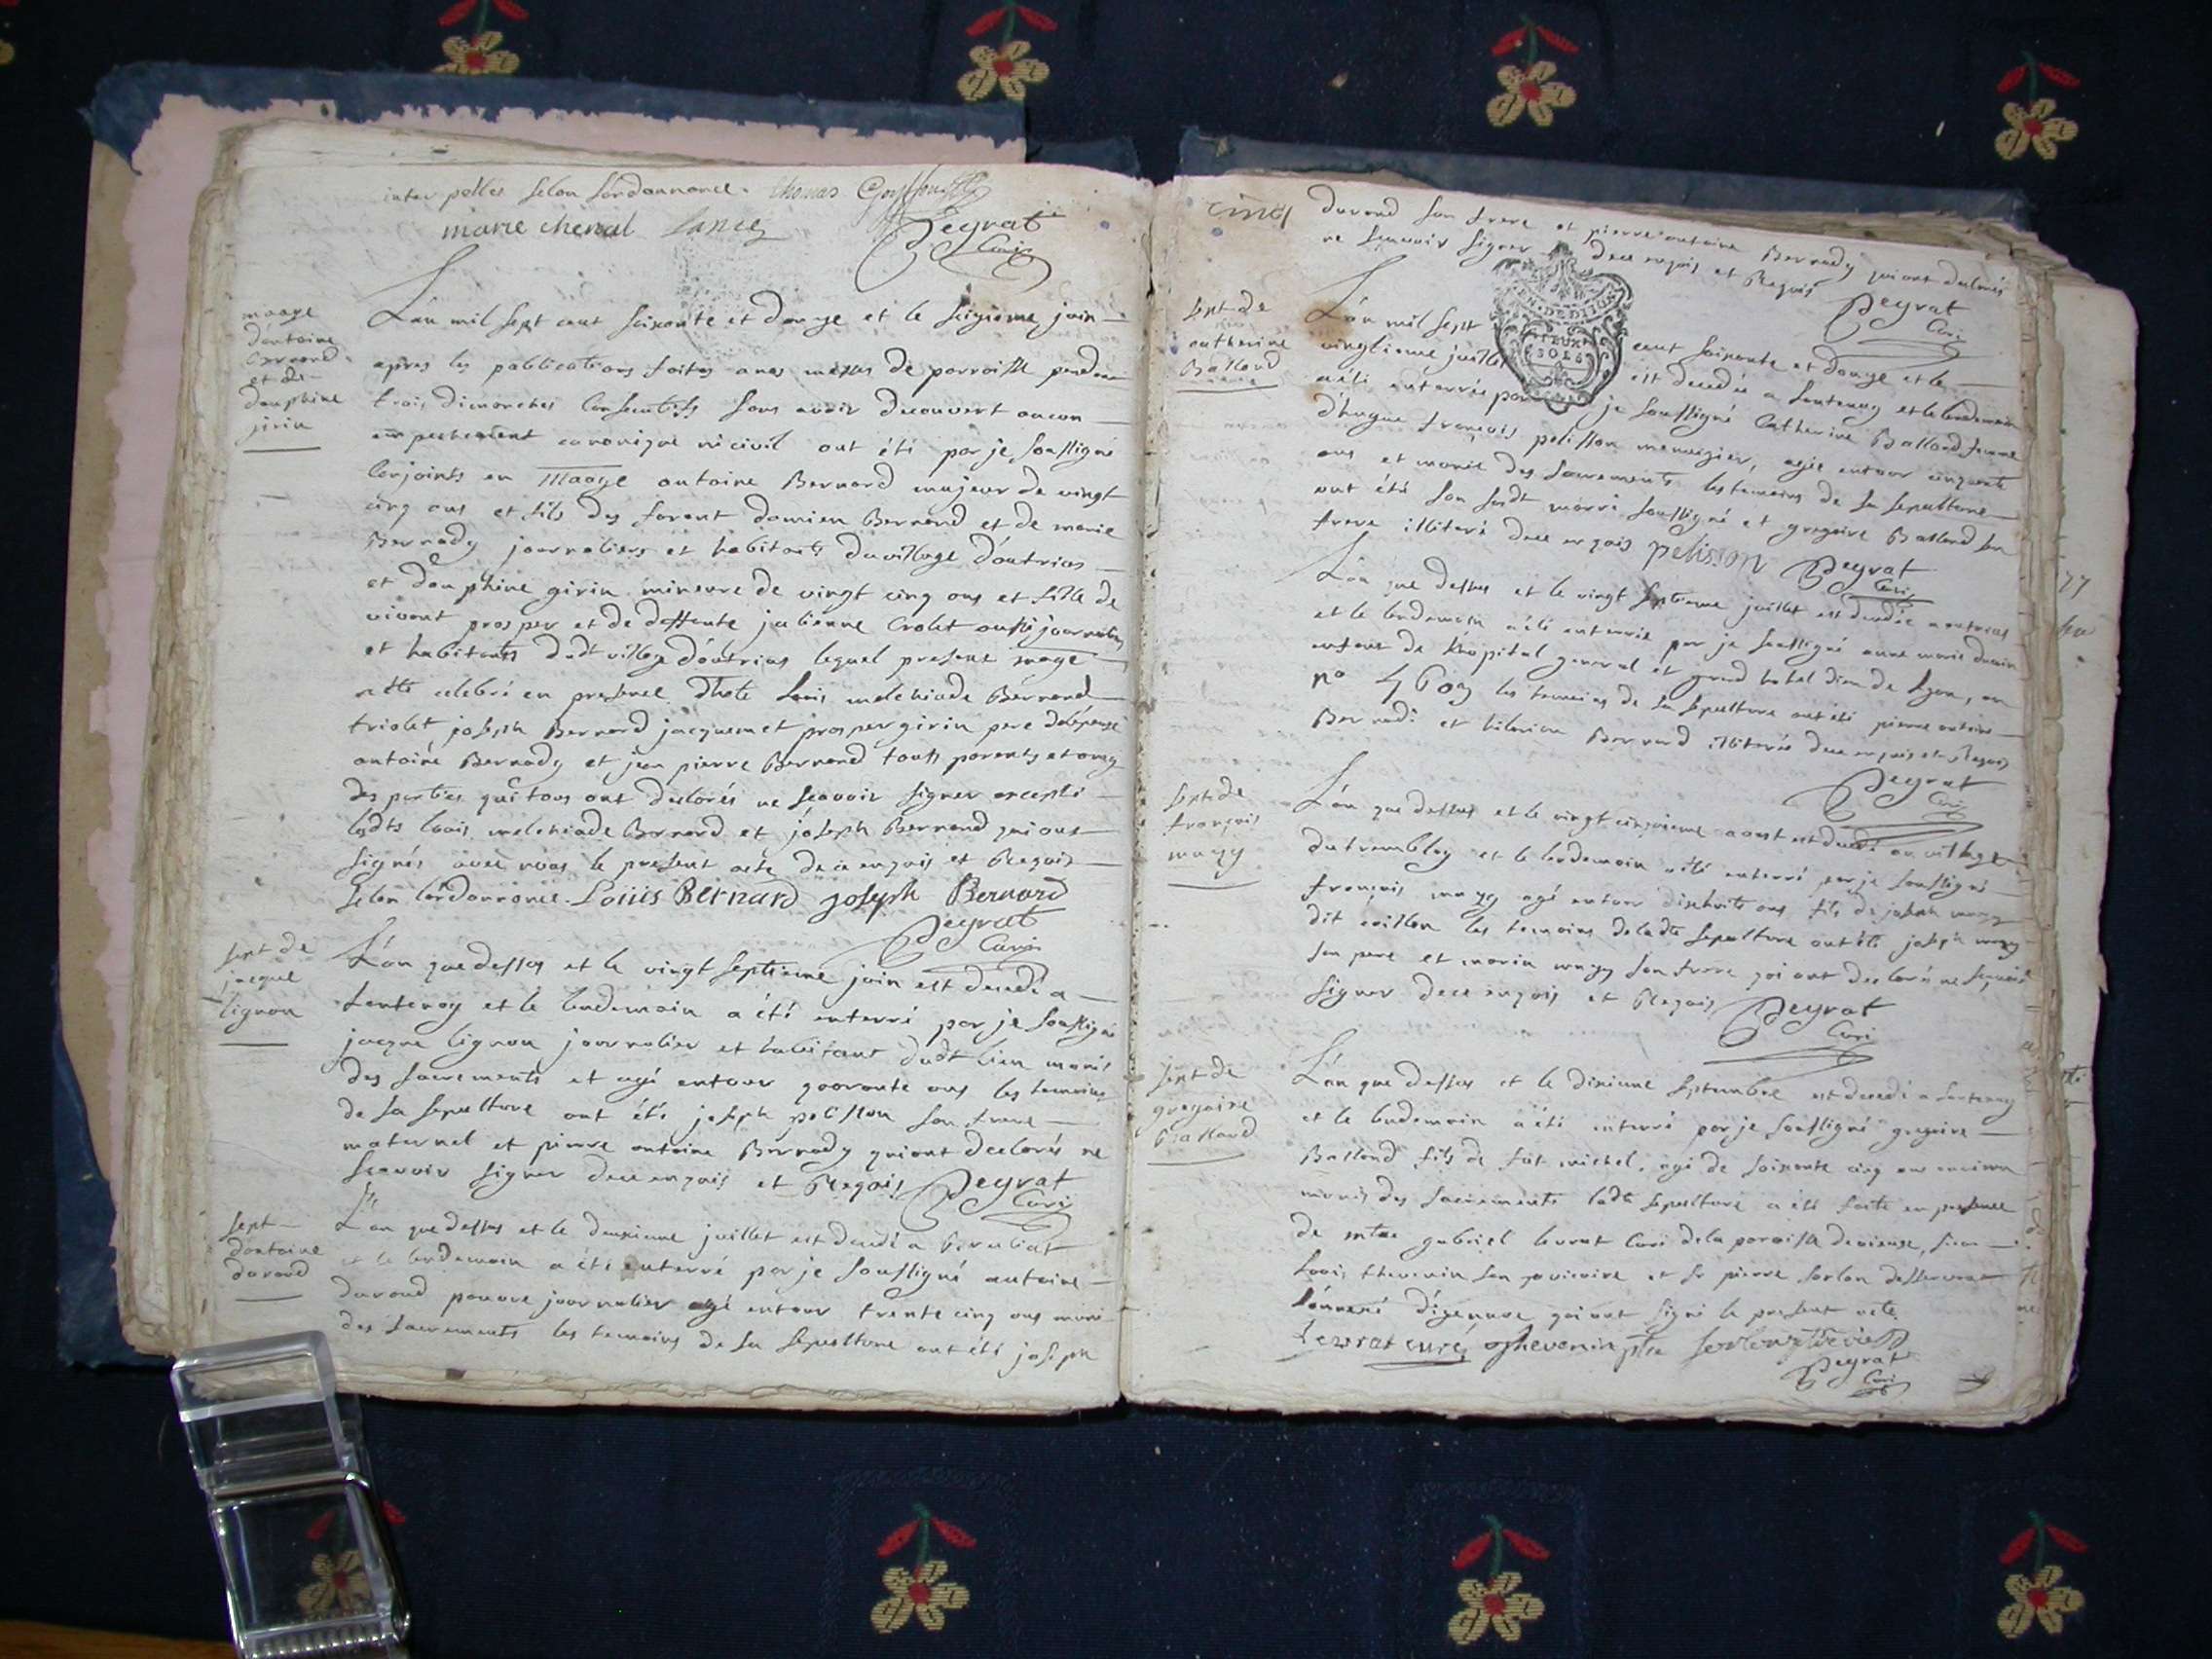 interpellés selon lordonnance. thomas
marie chenal Lance Peyrat
Curé
maage
dantoine
Bernard
et de
dauphine
girin
L'an mil sept cent soixante et douze et le seizieme juin
apres les publications faites a nos messes de parroisse pendant
trois dimanches consecutifs sans avoir decouvert aucun
empechement canonique ni civil ont été par je soussigné
conjoints en maage antoine Bernard majeur de vingt
cinq ans et fils des furent damien Bernard et de marie
Bernady journaliers et habitants du village d'outrias
et dauphine girin mineure de vingt cinq ans et fille de
vivant prosper et de deffunte julienne Crolet aussi journaliers
et habitants dudt village d'outrias lequel present maage
a été celebré en presence dhote Louis melchiade Bernard
triolet joseph Bernard jacquemet prosper girin pere de lépouse
antoine Bernady et jean pierre Bernard touts parents et amis
des parties qui tous ont declarés ne scavoir signer excepté
lesdts louis melchiade Bernard et joseph Bernard qui ont
signés avec nous le present acte de ce enquis et Requis
selon lordonnance. Louis Bernard joseph Bernard
Peyrat
Curé
sept de
jacque
lignon
L'an que dessus et le vingt septieme juin est decedé a
Lantenay et le lendemain a été enterré par je soussigné
jacque lignon journalier et habitant dudt lieu muni
des sacrements et agé entour quarante ans les temoins
de sa sepulture ont été joseph pelisson son frere
maternel et pierre antoine Bernady qui ont declarés ne
scavoir signer de ce enquis et Requis Peyrat
Curé
sept
dantoine
durand
L'an que dessus et le deuxieme juillet est decedé a
et le lendemain a été enterré par je soussigné antoine
durand pauvre journalier agé entour trente cinq ans muni
des sacrements les temoins de sa sepulture ont été joseph
cinq
durand son frere et pierre antoine Bernady qui ont declarés
ne scavoir signer de ce enquis et Requis Peyrat
Curé
sept de
catherine
Balland
L'an mil sept cent soixante et douze et le
vingtieme juillet est decedée a Lantenay et le lendemain
a été enterrée par je soussigné Catherine Balland femme
d'hugue françois pelisson menuizier, agée entour cinquante
ans et munie des sacrements les temoins de sa sepulture
ont été son susdt marri soussigné et gregoire Balland son
frere illiteré de ce enquis pelisson Peyrat
Curé
L'an que dessus et le vingt septieme juillet est decedée a outrias
et le lendemain a été enterrée par je soussigné anne marie
enfant de l'hopital general et grand hotel dieu de Lyon, au
n° les temoins de sa sepulture ont été pierre antoine
Bernadi et hilarion Bernard illiterés de ce enquis et Requis
Peyrat
Curé
sept de
françois
mugy
L'an que dessus et le vingt cinquieme aoust est decedé au village
du tremblay et le lendemain a été enterré par je soussigné
françois mugy agé entour dixhuits ans fils de joseph mugy
dit les temoins de ladte sepulture ont été joseph mugy
son pere et marin mugy son frere qui ont declaré ne scavoir
signer de ce enquis et Requis Peyrat
Curé
sept de
gregoire
Balland
L'an que dessus et le dixieme septembre est decedé a Lantenay
et le lendemain a été enterré par je soussigné gregoire
Balland fils de fut michel, agé de soixante cinq ans environ
munis des sacrements ladte sepulture a été faite en presence
de mtre gabriel levrat Curé de la paroisse de vieuxe, sieur
Louis thevenin son vicaire et sr pierre sorlon desservant
dizenave qui ont signé le present acte.
Levrat curé thevenin ptre
Peyrat
Curé